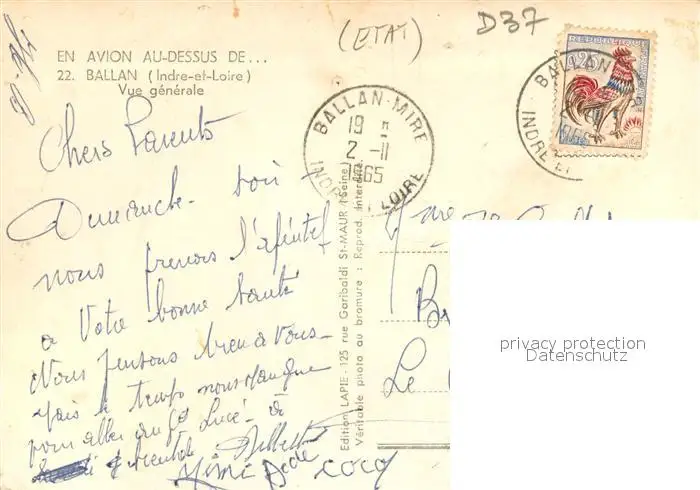 (ETAT)
D37
EN AVION AU-DESSUS DE...
22. BALLAN (Indre-et-Loire)
Vue générale
BALLAN-MIRE
19 H
2 -11
1965
INDRE ET LOIRE
BALLAN
INDRE ET
1965
0,25
Chers Parents
Dimanche soir
nous prenons l'apéritif
a Votre bonne santé
Nous pensons bien a Vous
Mais le temps nous manque
pour aller au Gd Lucé. à
Mimi Dédé COCO
Edition LAPIE - 125 rue Garibaldi St-MAUR (Seine)
Véritable photo au bromure : Reprod. interdite.
Le
privacy protection
Datenschutz